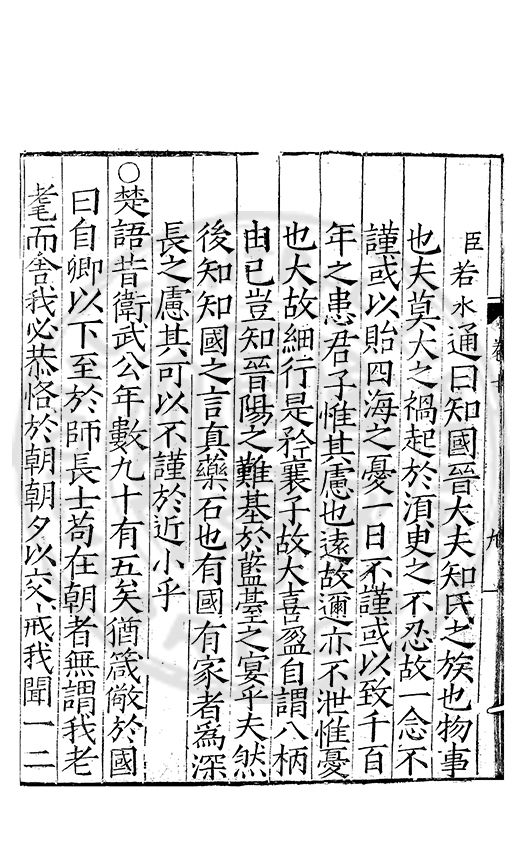 臣若水通曰知國晉大夫知氏之族也物事
也夫莫大之禍起於湏臾之不忍故一念不
謹或以貽四海之憂一日不謹或以致千百
年之患君子惟其慮也遠故邇亦不泄惟憂
也大故細行是矜襄子故大喜盈自謂八柄
由已豈知晉陽之難基於藍臺之宴乎夫然
後知知國之言真藥石也有國有家者為深
長之慮其可以不謹於近小乎
○楚語昔衛武公年數九十有五矣猶箴儆於國
曰自卿以下至於師長士苟在朝者無謂我老
耄而舍我必恭恪於朝朝夕以交戒我聞一二